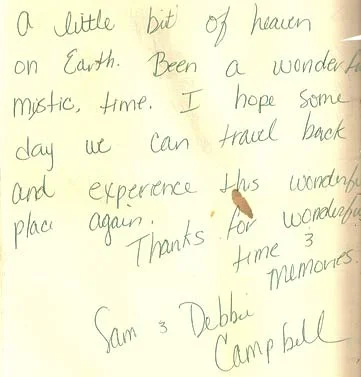 a little bit of heaven
on Earth. Been a wonderfu
mystic, time. I hope some
day we can travel back
and experience this wonderfu
place again.
Thanks for wonderful
time &
memories.
Sam & Debbie
Campbell